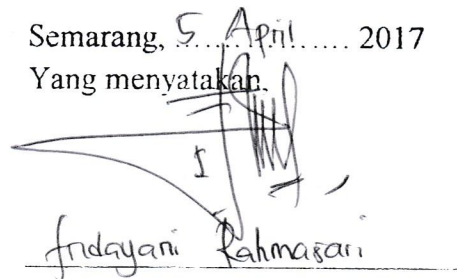 Semarang, 5 April 2017
Yang menyatakan,
Indayani Rahmasari